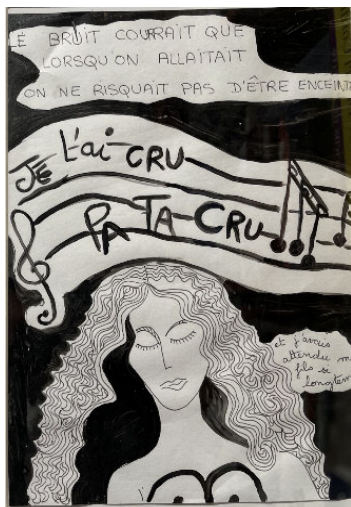 LE BRUIT COURAIT QUE
LORSQU'ON ALLAITAIT
ON NE RISQUAIT PAS D'ÊTRE ENCEINTE
JE L'ai CRU
PA TA CRU
et j'avais
attendu m
fils si
longtem